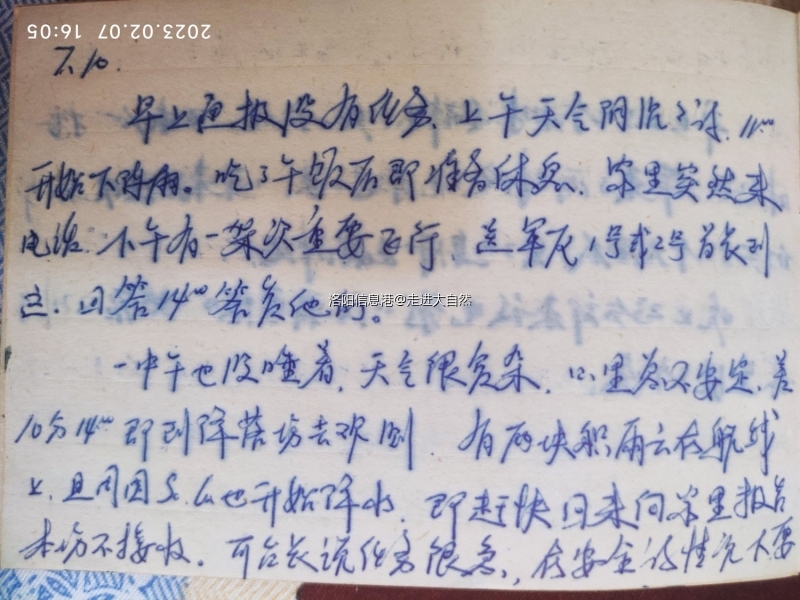 2023.02.07 16:05
7.10.
早上通报没有任务，上午天气阴沉，11:00
开始下阵雨。吃了午饭后即准备休息，家里突然来
电话，下午有一架次重要飞行，送军区1号或2号首长到
。回答14:00答复他们。
一中午也没睡着，天气很复杂，心里总不安定，差
10分14:00即到降落场去观测，有两块积雨云在航线
上，且周围多处也开始降水，即赶快回来向家里报告
本场不接收。台长说任务很急，在安全的情况下要
洛阳信息港@走进大自然